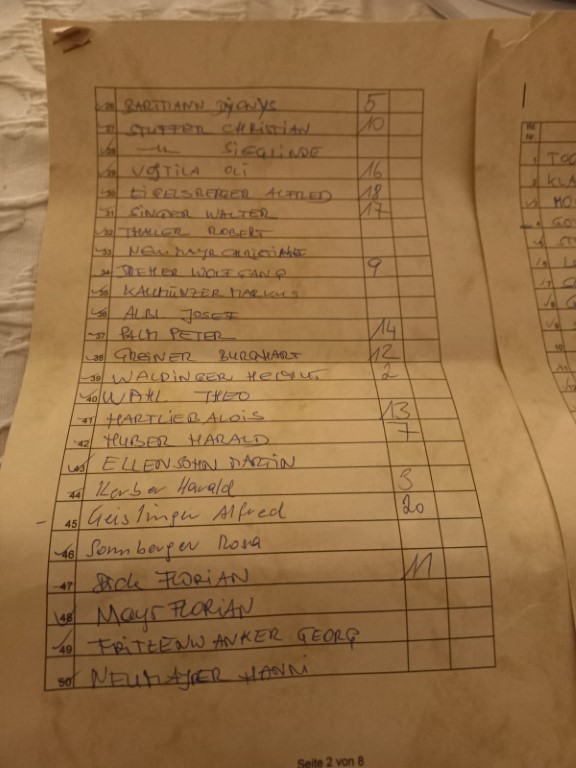 26 BARTMANN DIONYS 5
27 STUFFER CHRISTIAN 10
28 -"- SIEGLINDE
29 VOJTILA OLI 16
30 EIGELSBERGER ALFRED 18
31 SINGER WALTER 17
32 THALER ROBERT
33 NEUMAYR CHRISTINE
34 WOLFGANG 9
35 KALLMÜNZER MARKUS
36 ALBL JOSEF
37 PALM PETER 14
38 GREINER BURGHART 12
39 WALDINGER HELMUT 2
40 WAHL THEO
41 HARTLIEB ALOIS 13
42 HUBER HARALD 7
43 ELLENSOHN MARTIN
44 Kerber Harald 3
45 Geislinger Alfred 20
46 Sonnberger Rosa
47 FLORIAN 11
48 Mayr FLORIAN
49 FRITZENWANKER GEORG
50 NEUMAYER HANNI
Seite 2 von 8